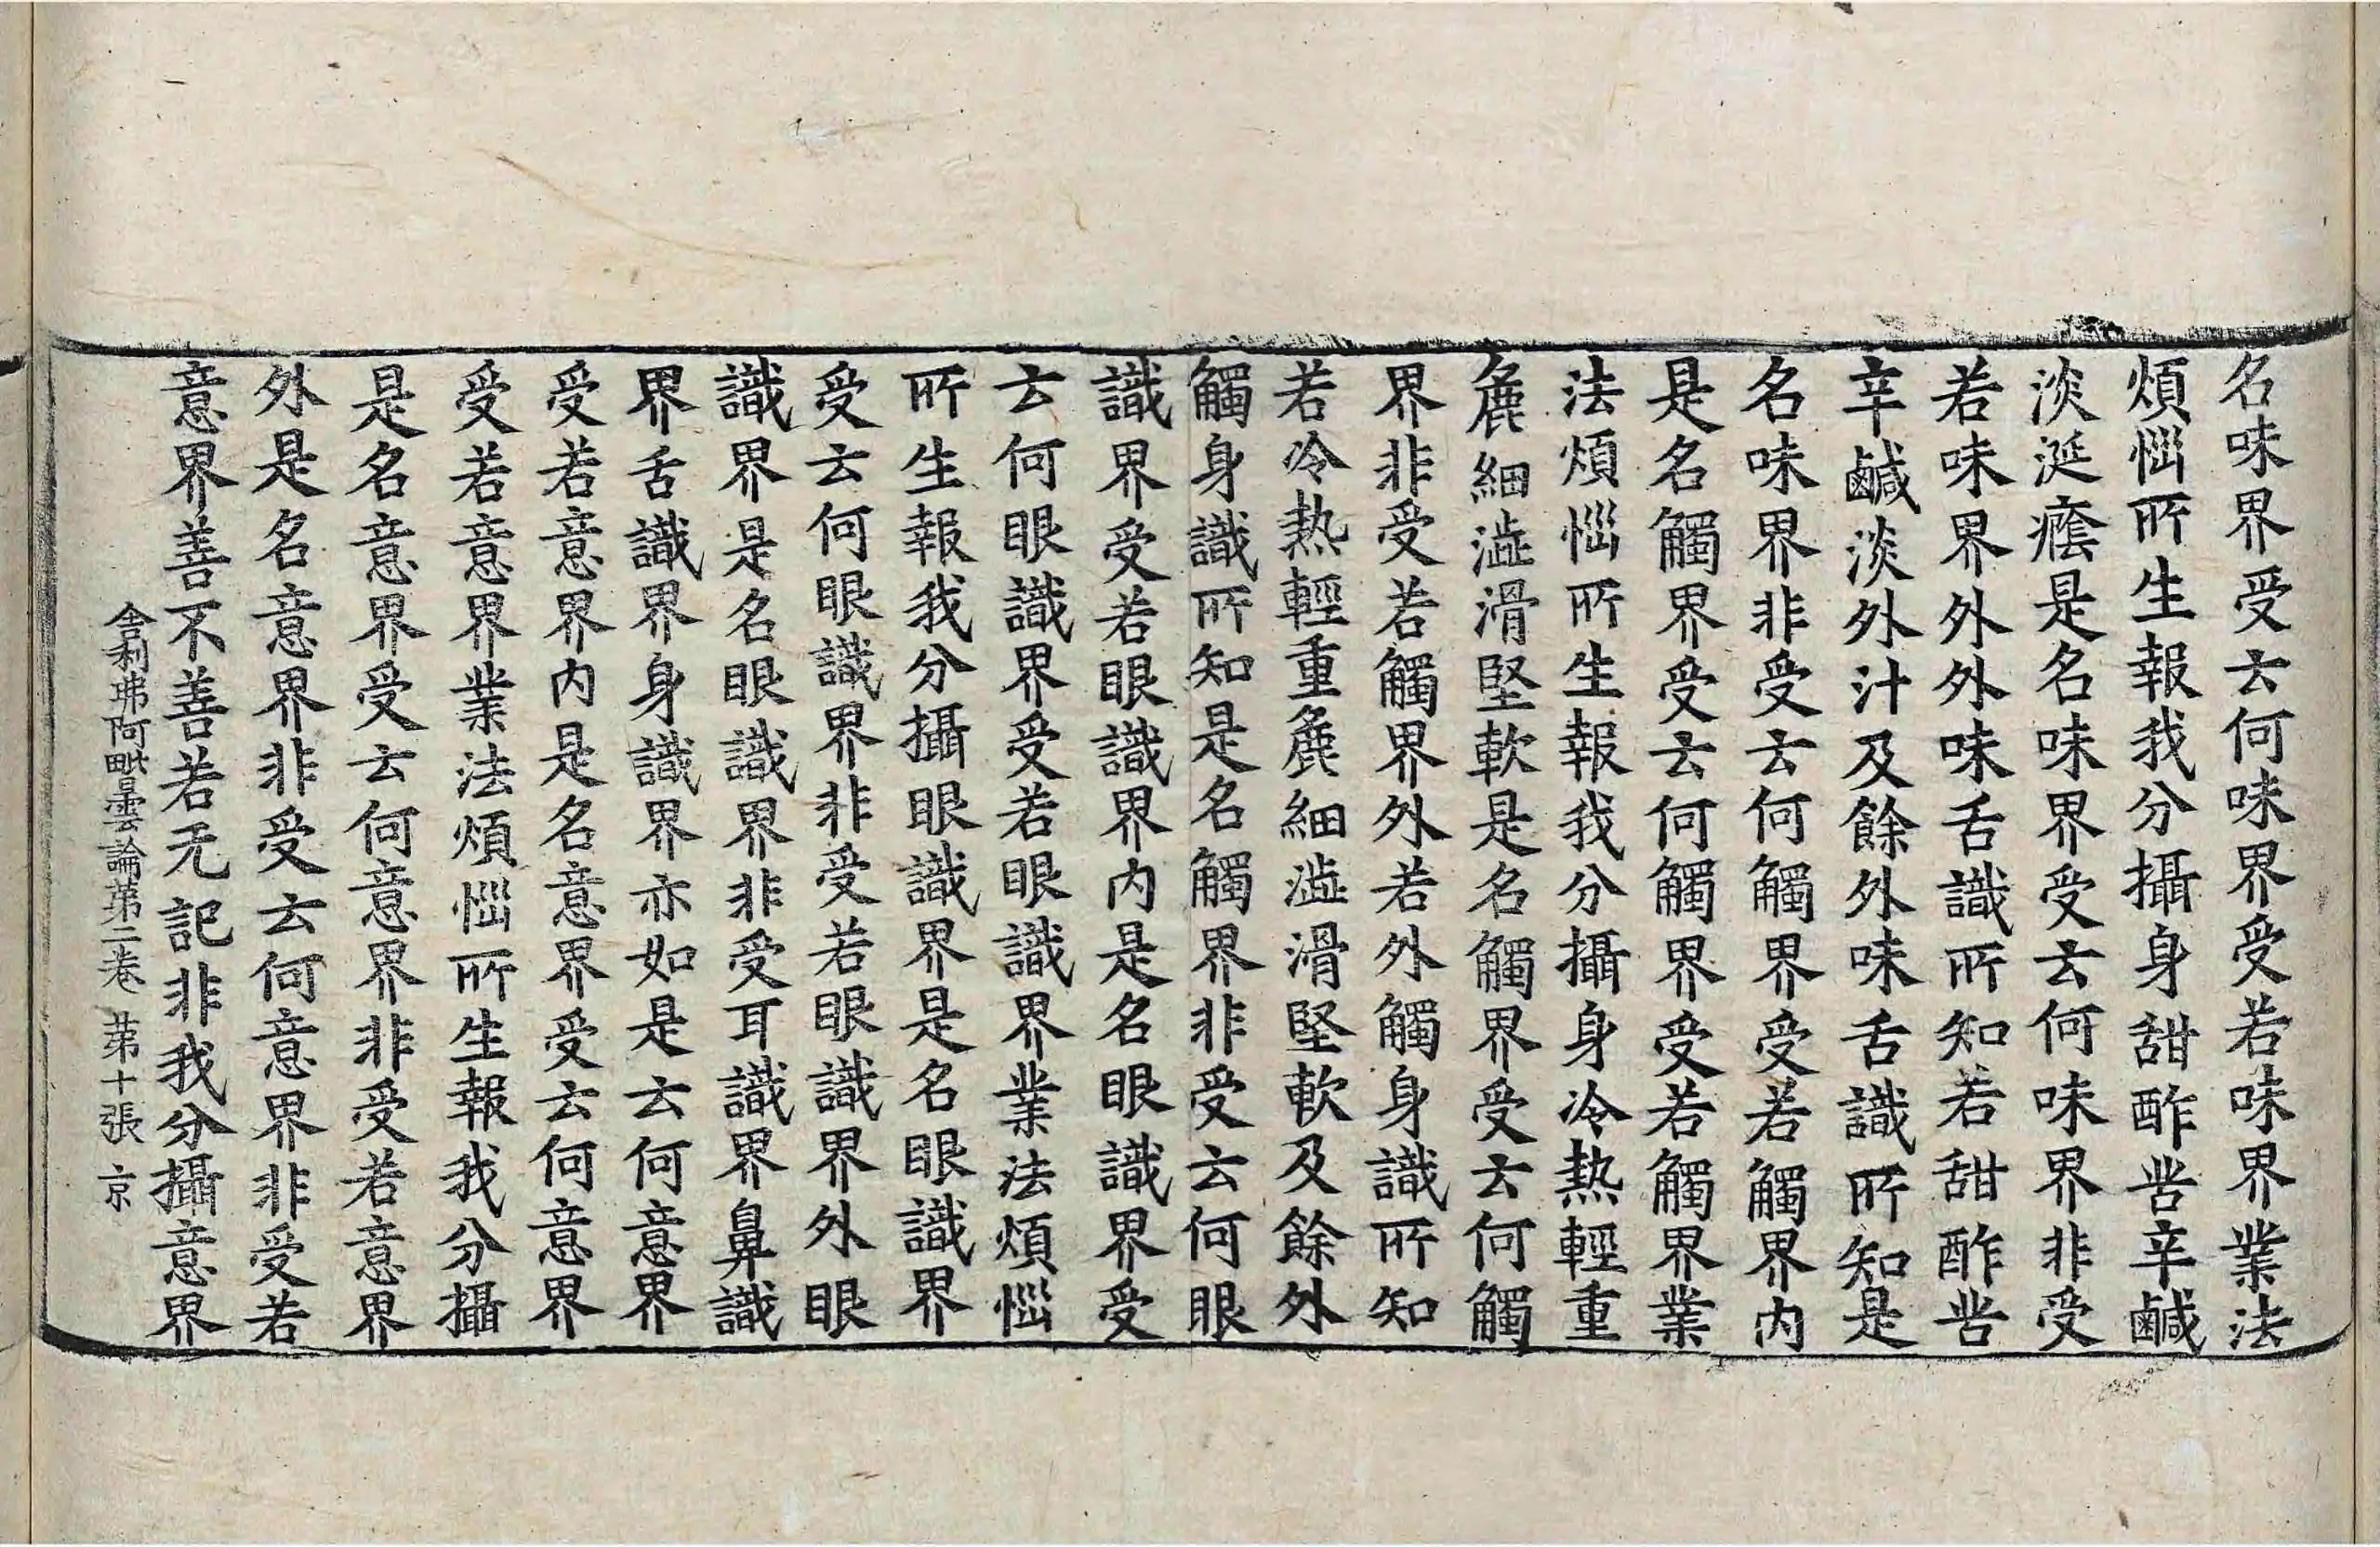 名味界受云何味界受若味界業法
煩惱所生報我分攝身甜酢苦辛鹹
淡涎癊是名味界受云何味界非受
若味界外外味舌識所知若甜酢苦
辛鹹淡外汁及餘外味舌識所知是
名味界非受云何觸界受若觸界內
是名觸界受云何觸界受若觸界業
法煩惱所生報我分攝身冷熱輕重
麁細澁滑堅軟是名觸界受云何觸
界非受若觸界外若外觸身識所知
若冷熱輕重麁細澁滑堅軟及餘外
觸身識所知是名觸界非受云何眼
識界受若眼識界內是名眼識界受
云何眼識界受若眼識界業法煩惱
所生報我分攝眼識界是名眼識界
受云何眼識界非受若眼識界外眼
識界是名眼識界非受耳識界鼻識
界舌識界身識界亦如是云何意界
受若意界內是名意界受云何意界
受若意界業法煩惱所生報我分攝
是名意界受云何意界非受若意界
外是名意界非受云何意界非受若
意界善不善若无記非我分攝意界
舍利弗阿毗曇論第二卷 第十張 京